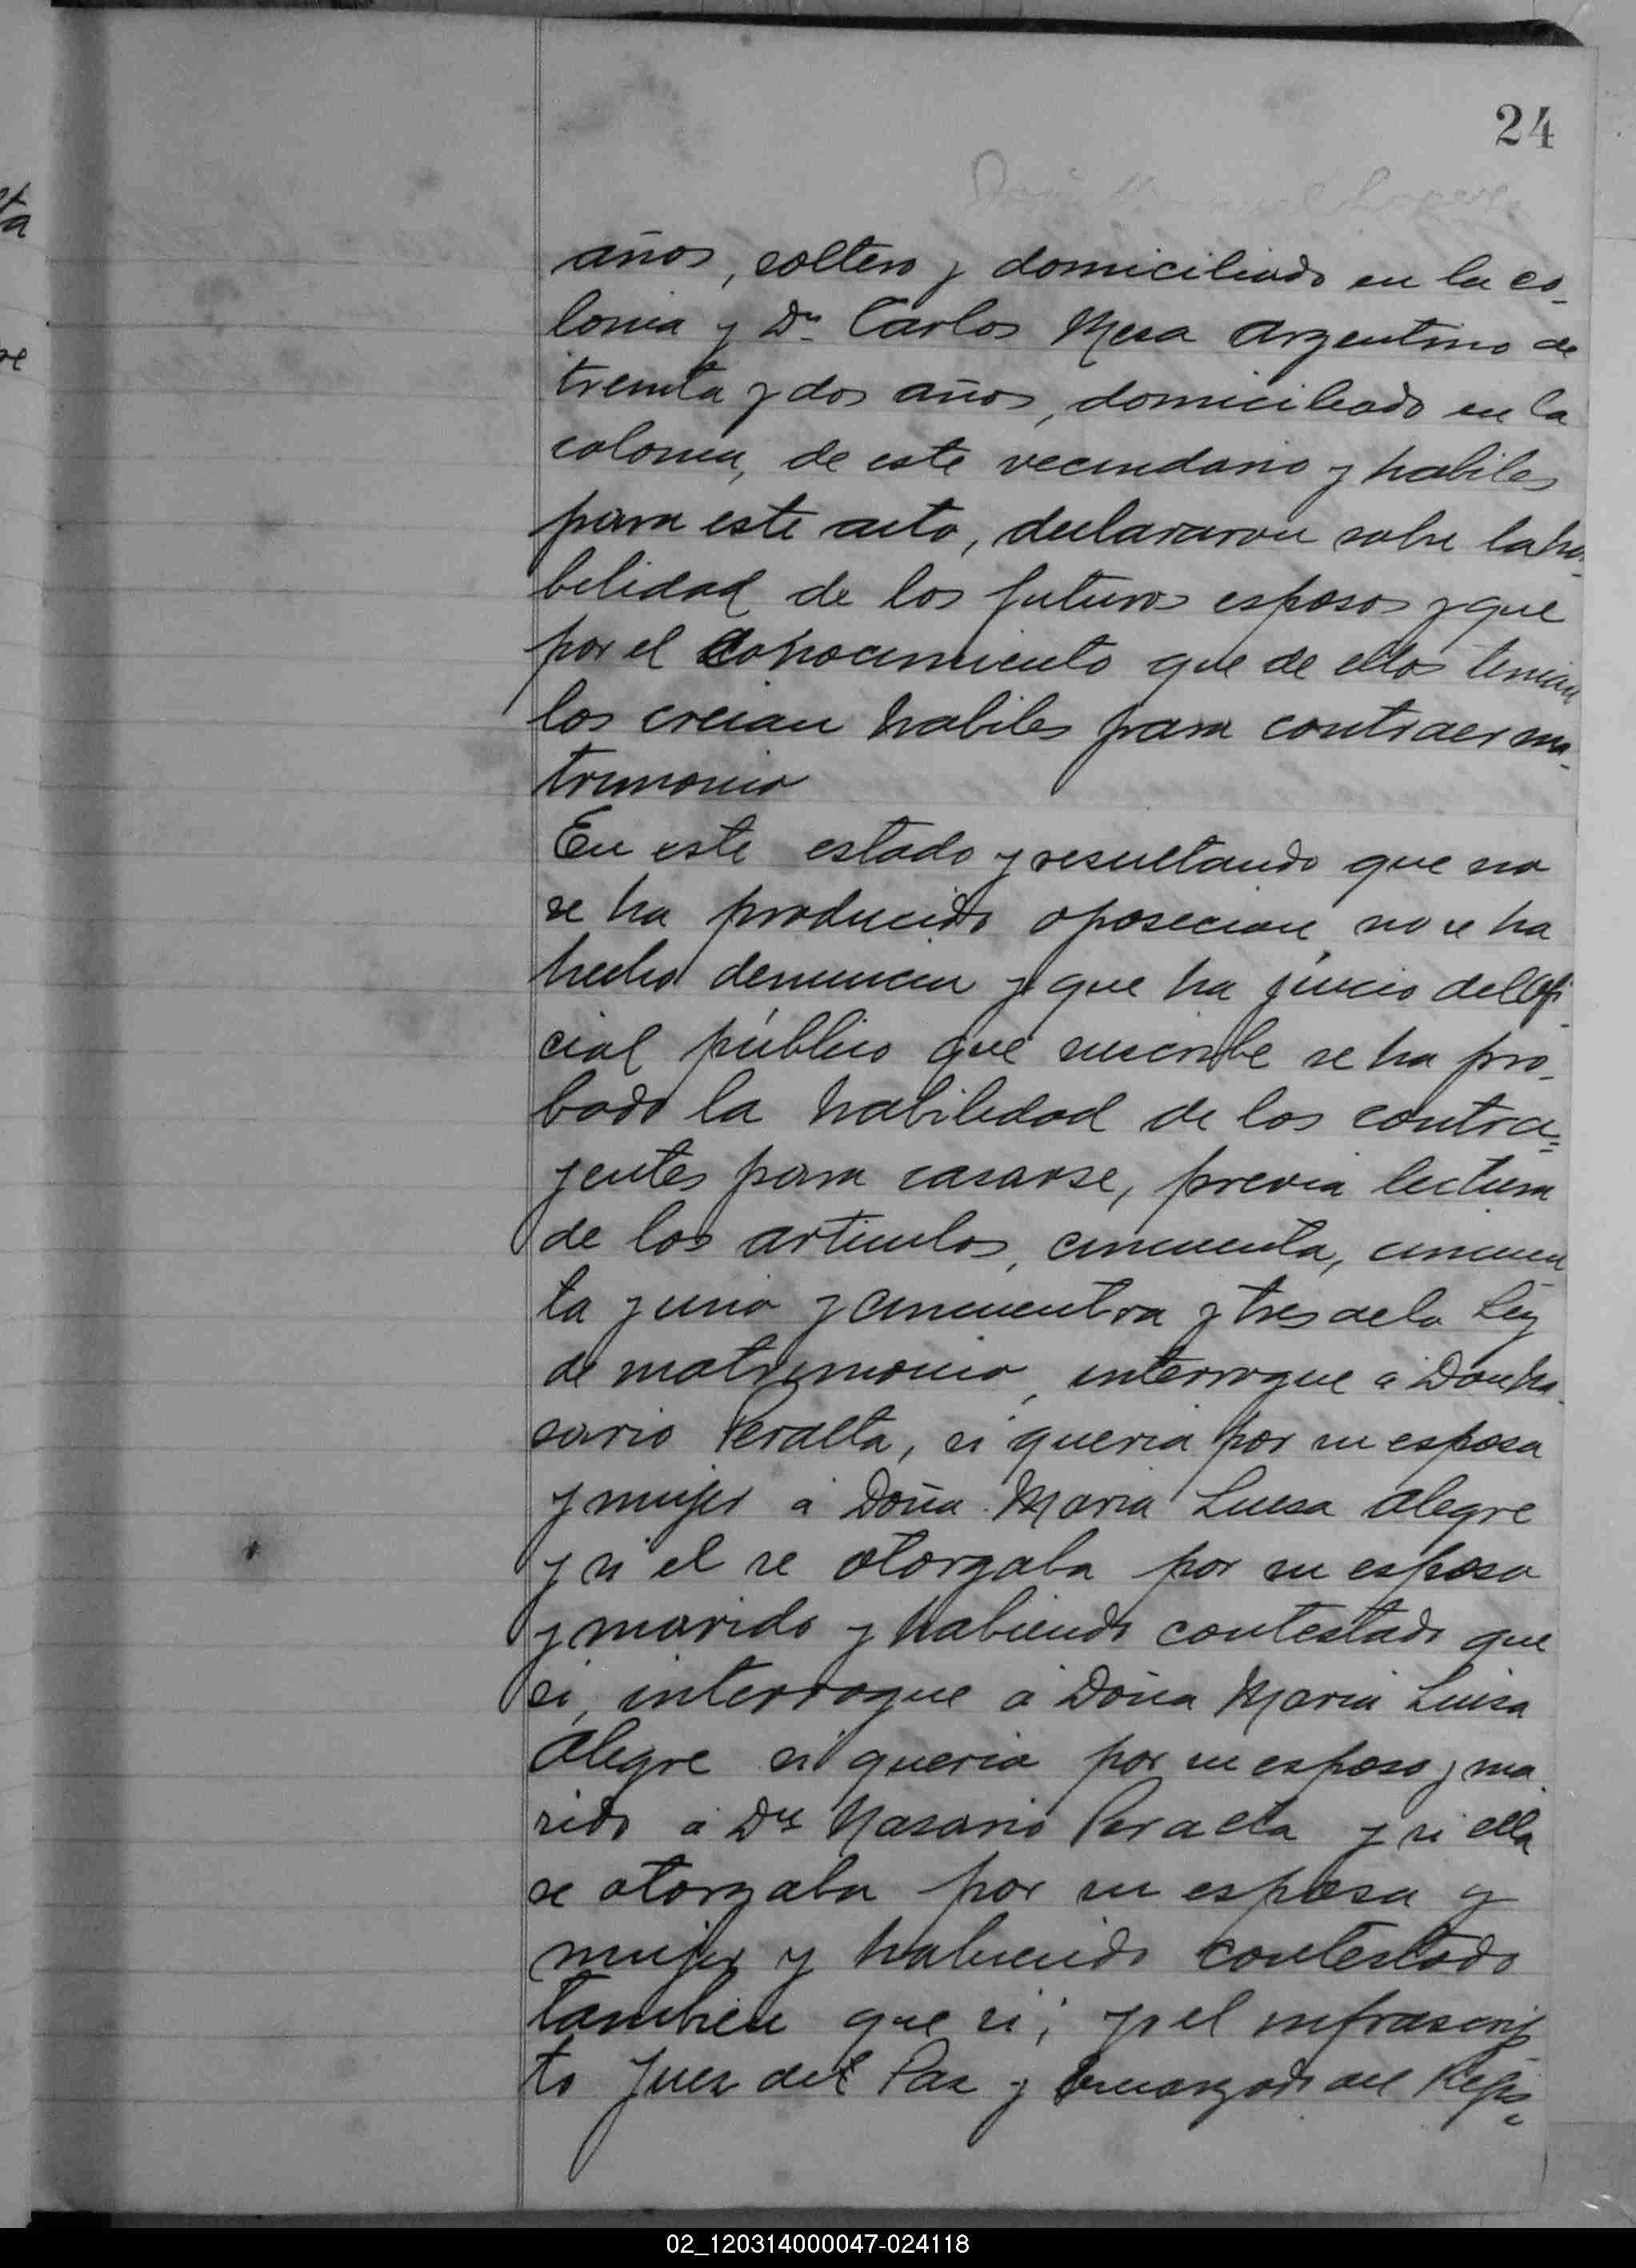 24
años, soltero y domiciliado en la co-
lonia y Dn Carlos Mesa Argentino de
treinta y dos años, domiciliado en la
colonia, de este vecindario y habiles
para este acto, declararon sobre la ha-
bilidad de los futuros esposos y que
por el conocimiento que de ellos tenian
los creian habiles para contraer ma-
trimonio
En este estado y resultando que no
se ha producido oposicion, no se ha
hecho denuncia y que ha juicio del Ofi-
cial público que suscribe se ha pro-
bado la habilidad de los contra=
yentes para casarse, previa lectura
de los articulos, cincuenta, cincuen
ta y uno y cincuentra y tres de la Ley
de matrimonio, interrogue á Don Na
sario Peralta, si queria por su esposa
y mujer á Doña Maria Luisa Alegre
y si el se otorgaba por su esposo
y marido y habiendo contestado que
si, interrogue á Doña Maria Luisa
Alegre si queria por su esposo y ma
rido á Dn Nasario Peralta y si ella
se otorgaba por su esposa y
mujer y habiendo contestado
tambien que si; yo el infrascrip
to Juez del Paz y Encargado del Regis
02_120314000047-024118